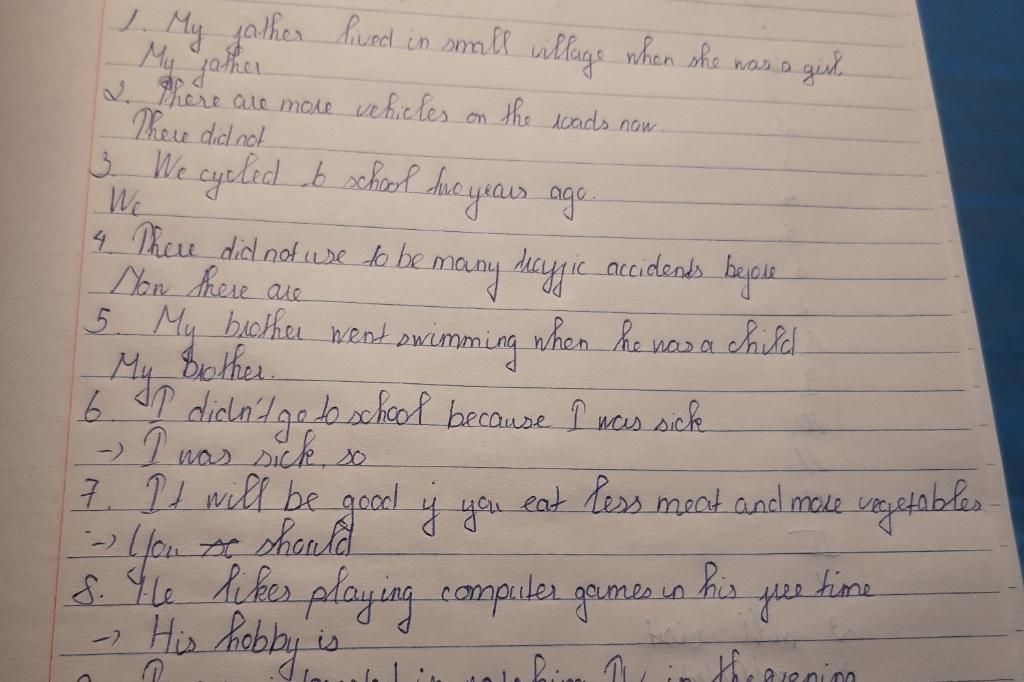 1. My father lived in small village when she was a girl.
My father
2. There are more vehicles on the roads now.
There did not
3. We cycled to school two years ago.
We
4. There did not use to be many traffic accidents before
Now there are
5. My brother went swimming when he was a child
My brother.
6. I didn't go to school because I was sick
-> I was sick, so
7. It will be good if you eat less meat and more vegetables
-> You should
8. He likes playing computer games in his free time
-> His hobby is
in the evening